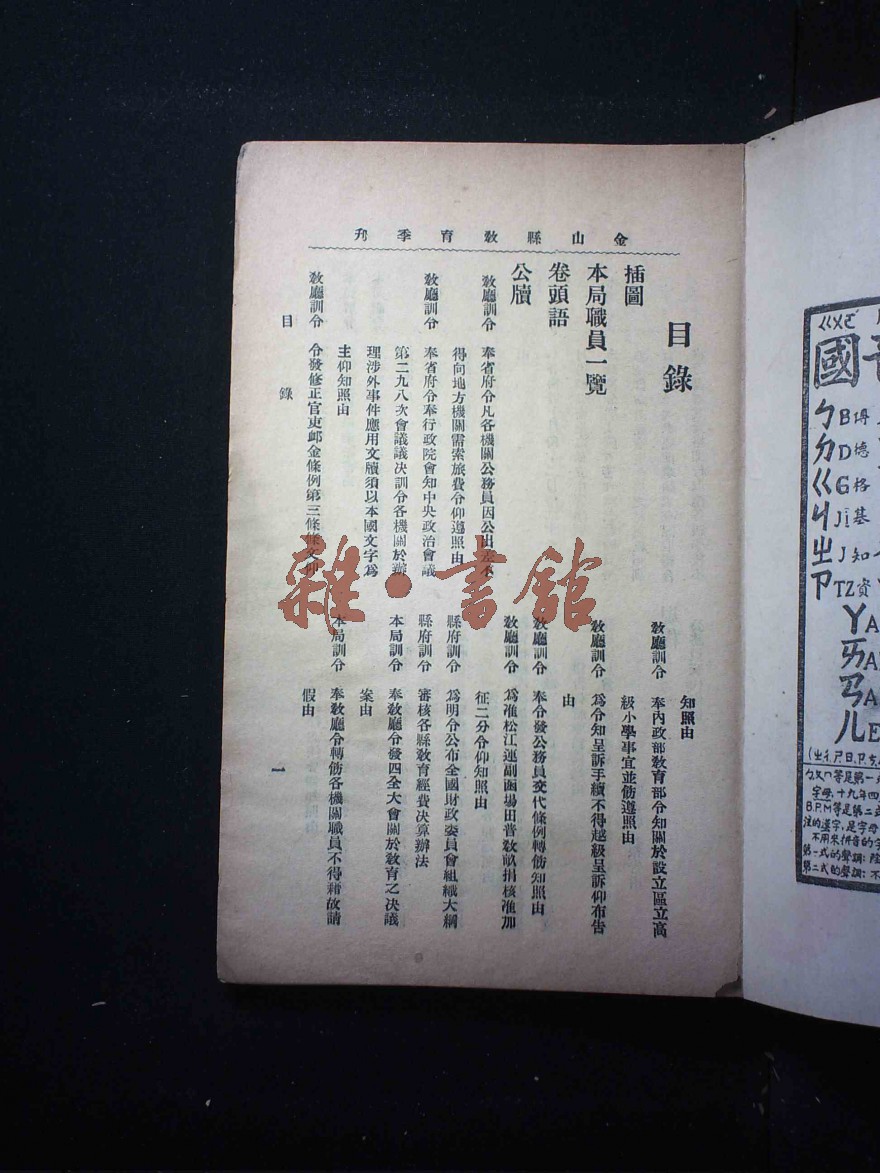 金山縣教育季刋
目錄
插圖
本局職員一覽
卷頭語
公牘
教廳訓令 奉省府令凡各機關公務員因公出差不
得向地方機關需索旅費令仰遵照由
教廳訓令 奉省府令奉行政院會知中央政治會議
第二九八次會議議决訓令各機關於辦
理涉外事件應用文牘須以本國文字為
主仰知照由
教廳訓令 令發修正官吏邺金條例第三條條文仰
知照由
教廳訓令 奉內政部教育部令知關於設立區立高
級小學事宜並飭遵照由
教廳訓令 為令知呈訴手續不得越級呈訴仰布告
由
教廳訓令 奉令發公務員交代條例轉飭知照由
教廳訓令 為准松江運副函場田普教畝捐核准加
征二分令仰知照由
縣府訓令 為明令公布全國財政委員會組織大綱
縣府訓令 審核各縣教育經費决算辦法
本局訓令 奉教廳令發四全大會關於教育之决議
案由
本局訓令 奉教廳令轉飭各機關職員不得藉故請
假由
目錄
一
雜·書館
ㄍㄨㄛ
國音
ㄅB博
ㄉD德
ㄍG格
ㄐJi基
ㄓJ知
ㄗTZ資
ㄚA
ㄞAI
ㄢAN
ㄦE